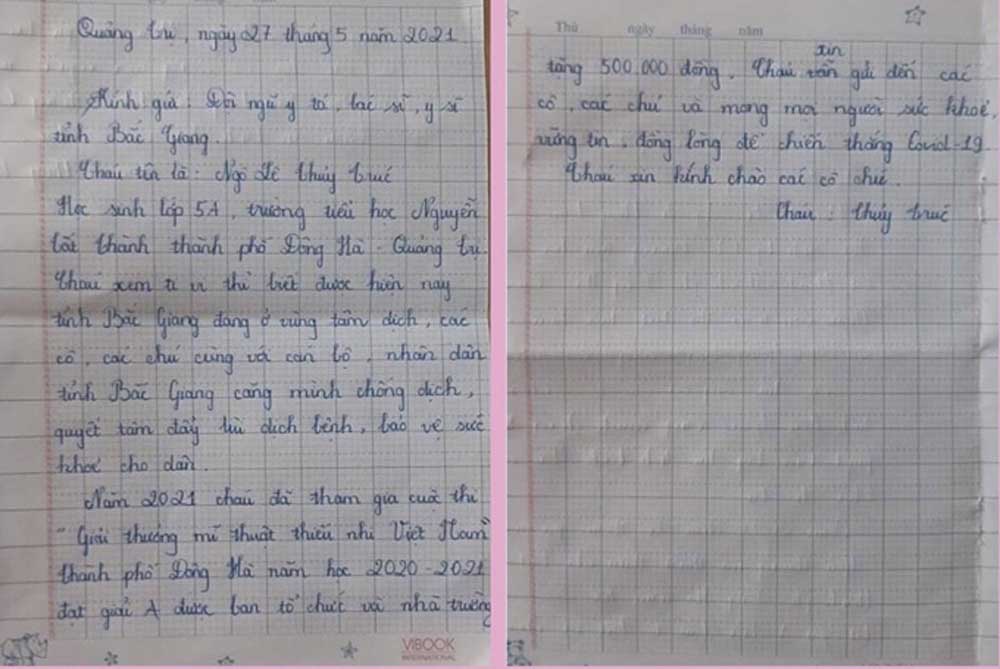 Quảng trị, ngày 27 tháng 5 năm 2021
Kính gửi: Đội ngũ y tá, bác sĩ, y sĩ
tỉnh Bắc Giang.
Cháu tên là: Ngô Lê Thủy Trúc
Học sinh lớp 5A, trường tiểu học Nguyễn
Tất Thành thành phố Đông Hà - Quảng trị.
Cháu xem ti vi thì biết được hiện nay
tỉnh Bắc Giang đang ở vùng tâm dịch, các
cô, các chú cùng với cán bộ, nhân dân
tỉnh Bắc Giang căng mình chống dịch,
quyết tâm đẩy lùi dịch bệnh, bảo vệ sức
khoẻ cho dân.
Năm 2021 cháu đã tham gia cuộc thi
"Giải thưởng mĩ thuật thiếu nhi Việt Nam"
thành phố Đông Hà năm học 2020-2021
đạt giải A được ban tổ chức và nhà trường
VIBOOK
INTERNATIONAL
Thứ ngày tháng năm
xin
tặng 500.000 đồng. Cháu gửi đến các
cô, các chú và mong mọi người sức khoẻ,
vững tin, đồng lòng để chiến thắng Covid-19
Cháu xin kính chào các cô chú.
Cháu: Thủy Trúc